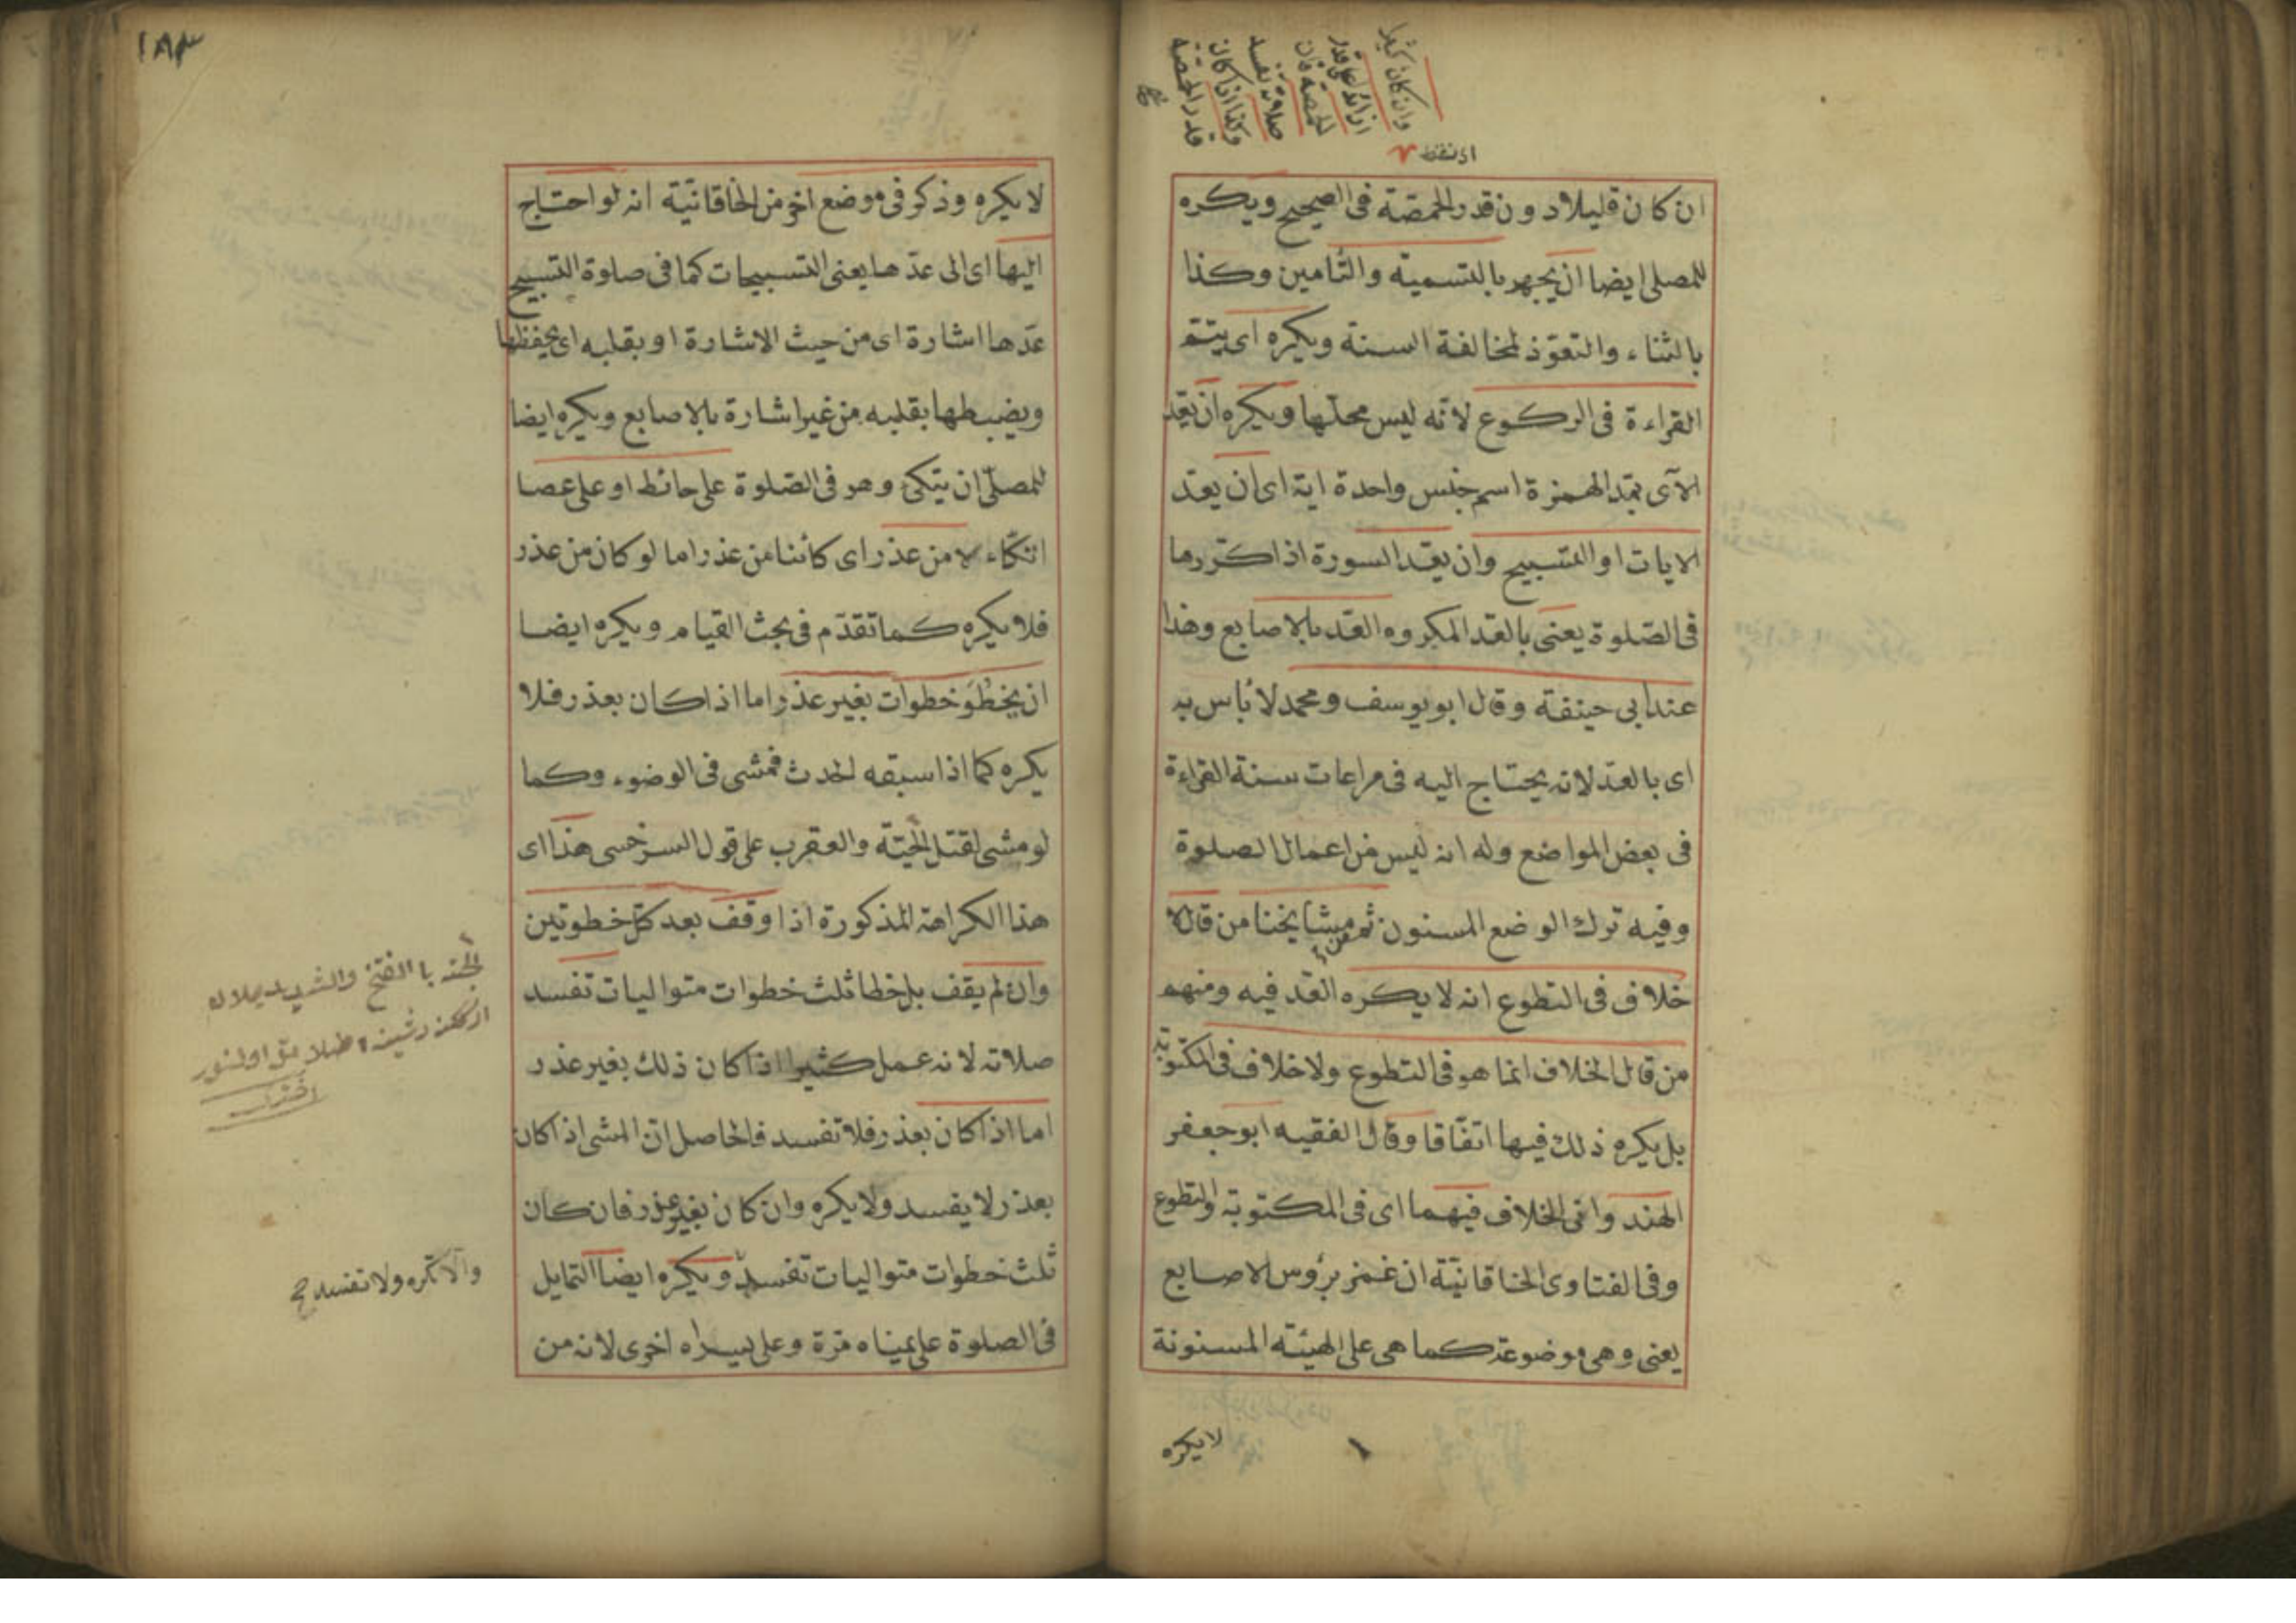 وان كان كثيرا
زائدا على قدر
الحمصة فان
صلاته تفسد
وكذا اذا كان
قدر الحمصة
ان كان قليلا دون قدر الحمصة فى الصحيح ويكره
للمصلى ايضا ان يجهر بالتسمية والتأمين وكذا
بالثناء والتعوّذ لمخالفة السنة ويكره اى يتم
القراءة فى الركوع لانّه ليس محلّها ويكره ان يعد
الآى بمد الهمزة اسم جنس واحدة اية اى ان يعدّ
الايات او التسبيح وان يعد السورة اذا كرّرها
فى الصّلوة يعنى بالعدّ المكروه العدّ بالاصابع وهذا
عند ابى حنيفة وقال ابو يوسف ومحمد لا بأس به
اى بالعدّ لانه يحتاج اليه فى مراعات سنة القراءة
فى بعض المواضع وله انه ليس من اعمال الصلوة
وفيه ترك الوضع المسنون ثم من مشايخنا من قال لا
خلاف فى التطوع انه لا يكره العد فيه ومنهم
من قال الخلاف انما هو فى التطوع ولا خلاف فى المكتوبة
بل يكره ذلك فيها اتفاقا وقال الفقيه ابو جعفر
الهند وانى الخلاف فيهما اى فى المكتوبة والتطوع
وفى الفتاوى الخاقانيّة ان غمز برؤس الاصابع
يعنى وهى موضوعة كما هى على الهيئة المسنونة
لا يكره
١٨٣
لا يكره وذكر فى موضع اخر من الخاقانيّة انه لو احتاج
اليها اى الى عدّها يعنى التسبيحات كما فى صلوة التسبيح
عدّها اشارة اى من حيث الاشارة او بقلبه اى يحفظها
ويضبطها بقلبه من غير اشارة بالاصابع ويكره ايضا
للمصلّى ان يتكى وهو فى الصّلوة على حائط او على عصا
اتّكاء لا من عذر اى كائنا من عذر اما لو كان من عذر
فلا يكره كما تقدّم فى بحث القيام ويكره ايضا
ان يخطو خطوات بغير عذر اما اذا كان بعذر فلا
يكره كما اذا سبقه الحدث فمشى فى الوضوء وكما
لو مشى لقتل الحيّة والعقرب على قول السرخسى هذا اى
هذا الكراهة المذكورة اذا وقف بعد كل خطوتين
وان لم يقف بل خطا ثلث خطوات متواليات تفسد
صلاته لانه عمل كثير اذا كان ذلك بغير عذر
اما اذا كان بعذر فلا تفسد فالحاصل انّ المشى اذا كان
بعذر لا يفسد ولا يكره وان كان بغير عذر فان كان
ثلث خطوات متواليات تفسد ويكره ايضا التمايل
فى الصلوة على يمناه مرة وعلى يسراه اخرى لانه من
بالفتح والتشديد
اخترى
والا تكره ولا تفسد